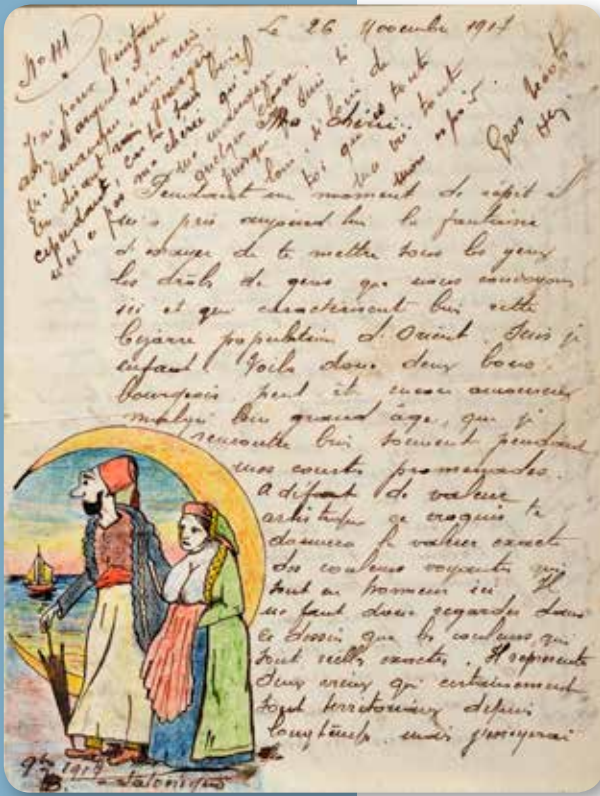 Le 26 Novembre 1917
N° 111
J'ai pour l'instant
assez d'argent, et en
cependant, car tu sais bien
n'est ce pas, ma chérie, qu'il
quelque chose
presque
loin, si loin de
toi qui es toute
ma vie, tout
mon espoir.
Gros bécots
Ma chérie.
Pendant un moment de répit il
m'a pris aujourd'hui la fantaisie
d'essayer de te mettre sous les yeux
les drôles de gens que nous
ici et qui caractérisent bien cette
bizarre population d'Orient. Suis je
enfant! Voilà donc deux bons
bourgeois peut être encore amoureux
malgré leur grand âge, que je
rencontre bien souvent pendant
mes courtes promenades.
A défaut de valeur
artistique ce croquis te
donnera la valeur exacte
des couleurs voyantes qui
sont en honneur ici. Il
ne faut donc regarder dans
ce dessin que les couleurs qui
sont réelles exactes. Il représente
deux vieux qui certainement
sont territoriaux depuis
longtemps. mais j'essayerai
9bre 1917
Salonique